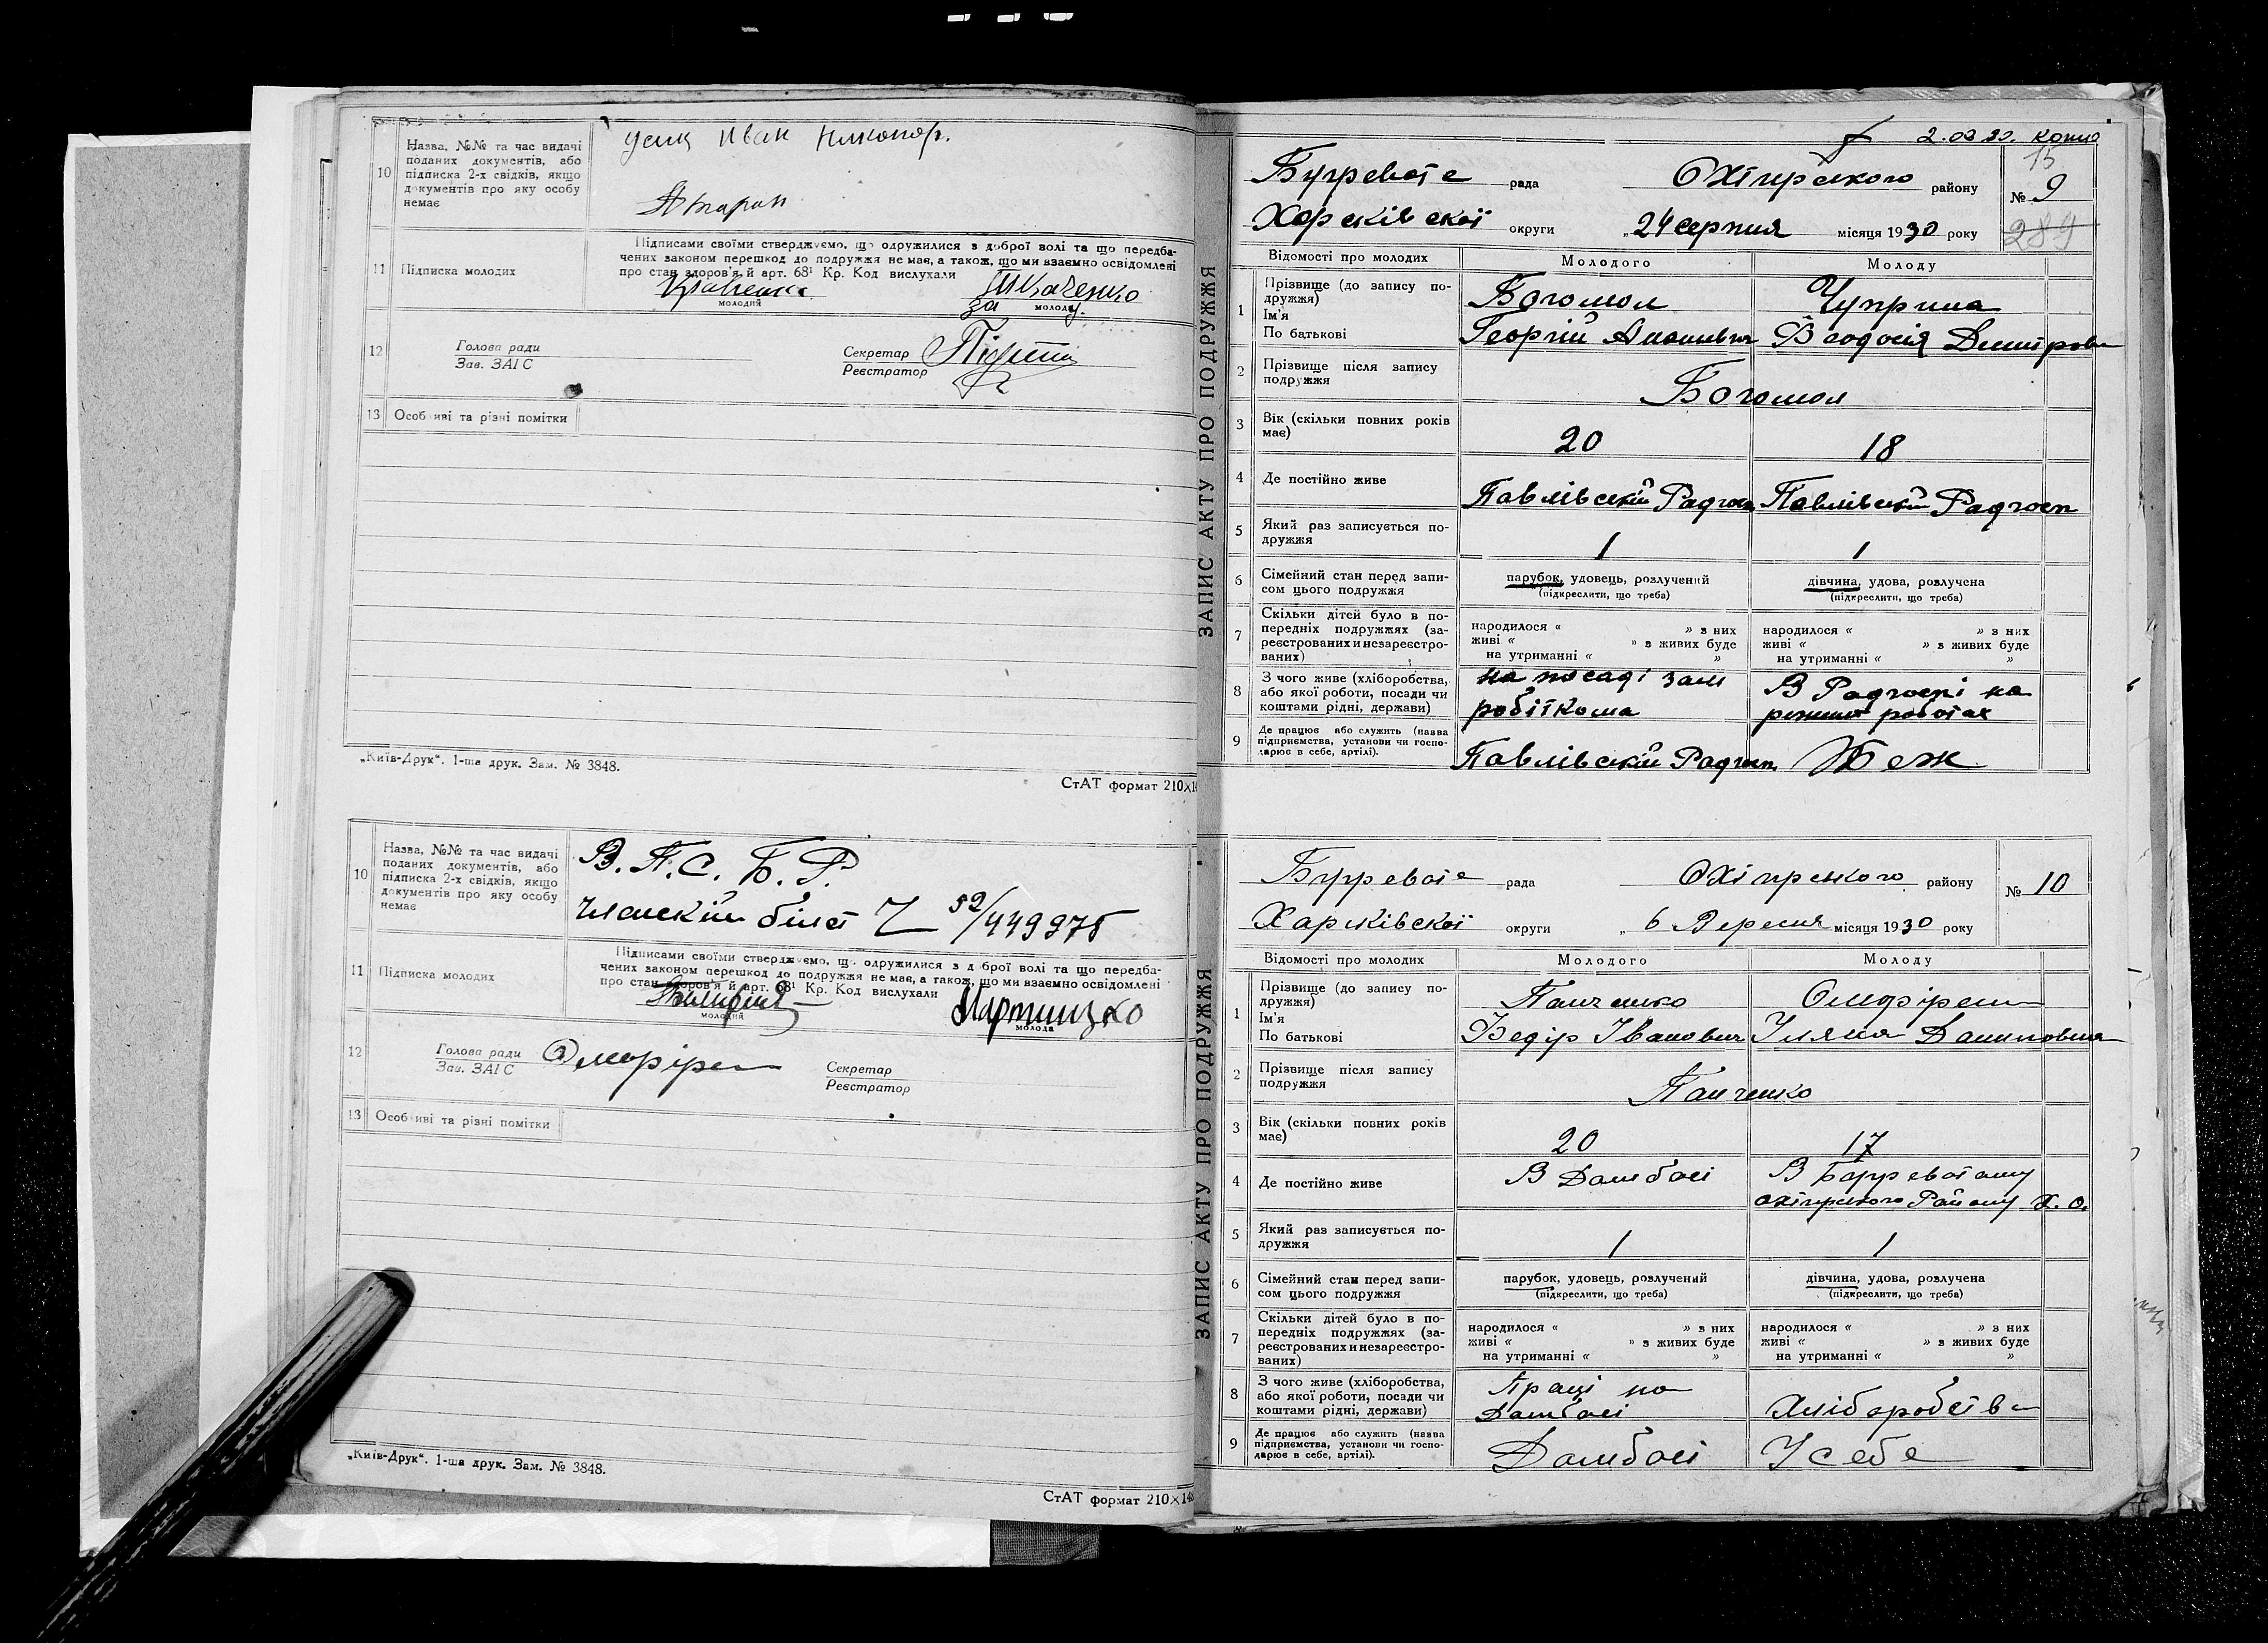 10 Назва, №№ та час видачі
поданих документів, або
підписка 2-х свідків, якщо
документів про яку особу
немає
Иван
11 Підписка молодих
Підписами своїми стверджуємо, що одружилися з доброї волі та що передба-
чених законом перешкод до подружжя не має, а також, що ми взаємно освідомлені
про стан здоров'я й арт. 68¹ Кр. Код вислухали
молодий
за Ткаченко
молоду
12 Голова ради
Зав. ЗАГС
Секретар
Реєстратор
13 Особливі та різні помітки
„Київ-Друк“. 1-ша друк. Зам. № 3848.
СтАТ формат 210×14
10 Назва, №№ та час видачі
поданих документів, або
підписка 2-х свідків, якщо
документів про яку особу
немає
В. П. С. Б. Р.
членскій білет
11 Підписка молодих
Підписами своїми стверджуємо, що одружилися з доброї волі та що передба-
чених законом перешкод до подружжя не має, а також, що ми взаємно освідомлені
про стан здоров'я й арт. 68¹ Кр. Код вислухали
молодий
молода
12 Голова ради
Зав. ЗАГС
Секретар
Реєстратор
13 Особливі та різні помітки
„Київ-Друк“. 1-ша друк. Зам. № 3848.
СтАТ формат 210×148
ЗАПИС АКТУ ПРО ПОДРУЖЖЯ
15
Бугревате рада Охтирського району № 9
Харківскої округи „24 серпня місяця 1930 року 289
Відомості про молодих Молодого Молоду
1 Прізвище (до запису по-
дружжя) Богомол Чуприна
Ім'я
По батькові Георгій Федосія
2 Прізвище після запису
подружжя Богомол
3 Вік (скільки повних років
має) 20 18
4 Де постійно живе Павлівській Радгосп Павлівській Радгосп
5 Який раз записується по-
дружжя 1 1
6 Сімейний стан перед запи-
сом цього подружжя
парубок, удовець, розлучений дівчина, удова, розлучена
(підкреслити, що треба) (підкреслити, що треба)
7 Скільки дітей було в по-
передніх подружжях (за-
реєстрованих и незареєстро-
ваних)
народилося « » з них народилося « » з них
живі « » з живих буде живі « » з живих буде
на утриманні « » на утриманні « »
8 З чого живе (хліборобства,
або якої роботи, посади чи
коштами рідні, держави)
на посаді зам В Радгоспі на
робіткома роботах
9 Де працює або служить (назва
підприємства, установи чи госпо-
дарює в себе, артілі).
Павлівській Радгосп Теж
ЗАПИС АКТУ ПРО ПОДРУЖЖЯ
Бугревате рада Охтирського району № 10
Харківскої округи „ 6 Вересня місяця 1930 року
Відомості про молодих Молодого Молоду
1 Прізвище (до запису по-
дружжя) Панченко
Ім'я
По батькові Федір Іванович
2 Прізвище після запису
подружжя Панченко
3 Вік (скільки повних років
має) 20 17
4 Де постійно живе В Дамбасі В Бугреватому
Охтирского Району Х. О.
5 Який раз записується по-
дружжя 1 1
6 Сімейний стан перед запи-
сом цього подружжя
парубок, удовець, розлучений дівчина, удова, розлучена
(підкреслити, що треба) (підкреслити, що треба)
7 Скільки дітей було в по-
передніх подружжях (за-
реєстрованих и незареєстро-
ваних)
народилося « » з них народилося « » з них
живі « » з живих буде живі « » з живих буде
на утриманні « » на утриманні « »
8 З чого живе (хліборобства,
або якої роботи, посади чи
коштами рідні, держави)
Праці на
Дамбасі Хліборобство
9 Де працює або служить (назва
підприємства, установи чи госпо-
дарює в себе, артілі).
Дамбасі У себе